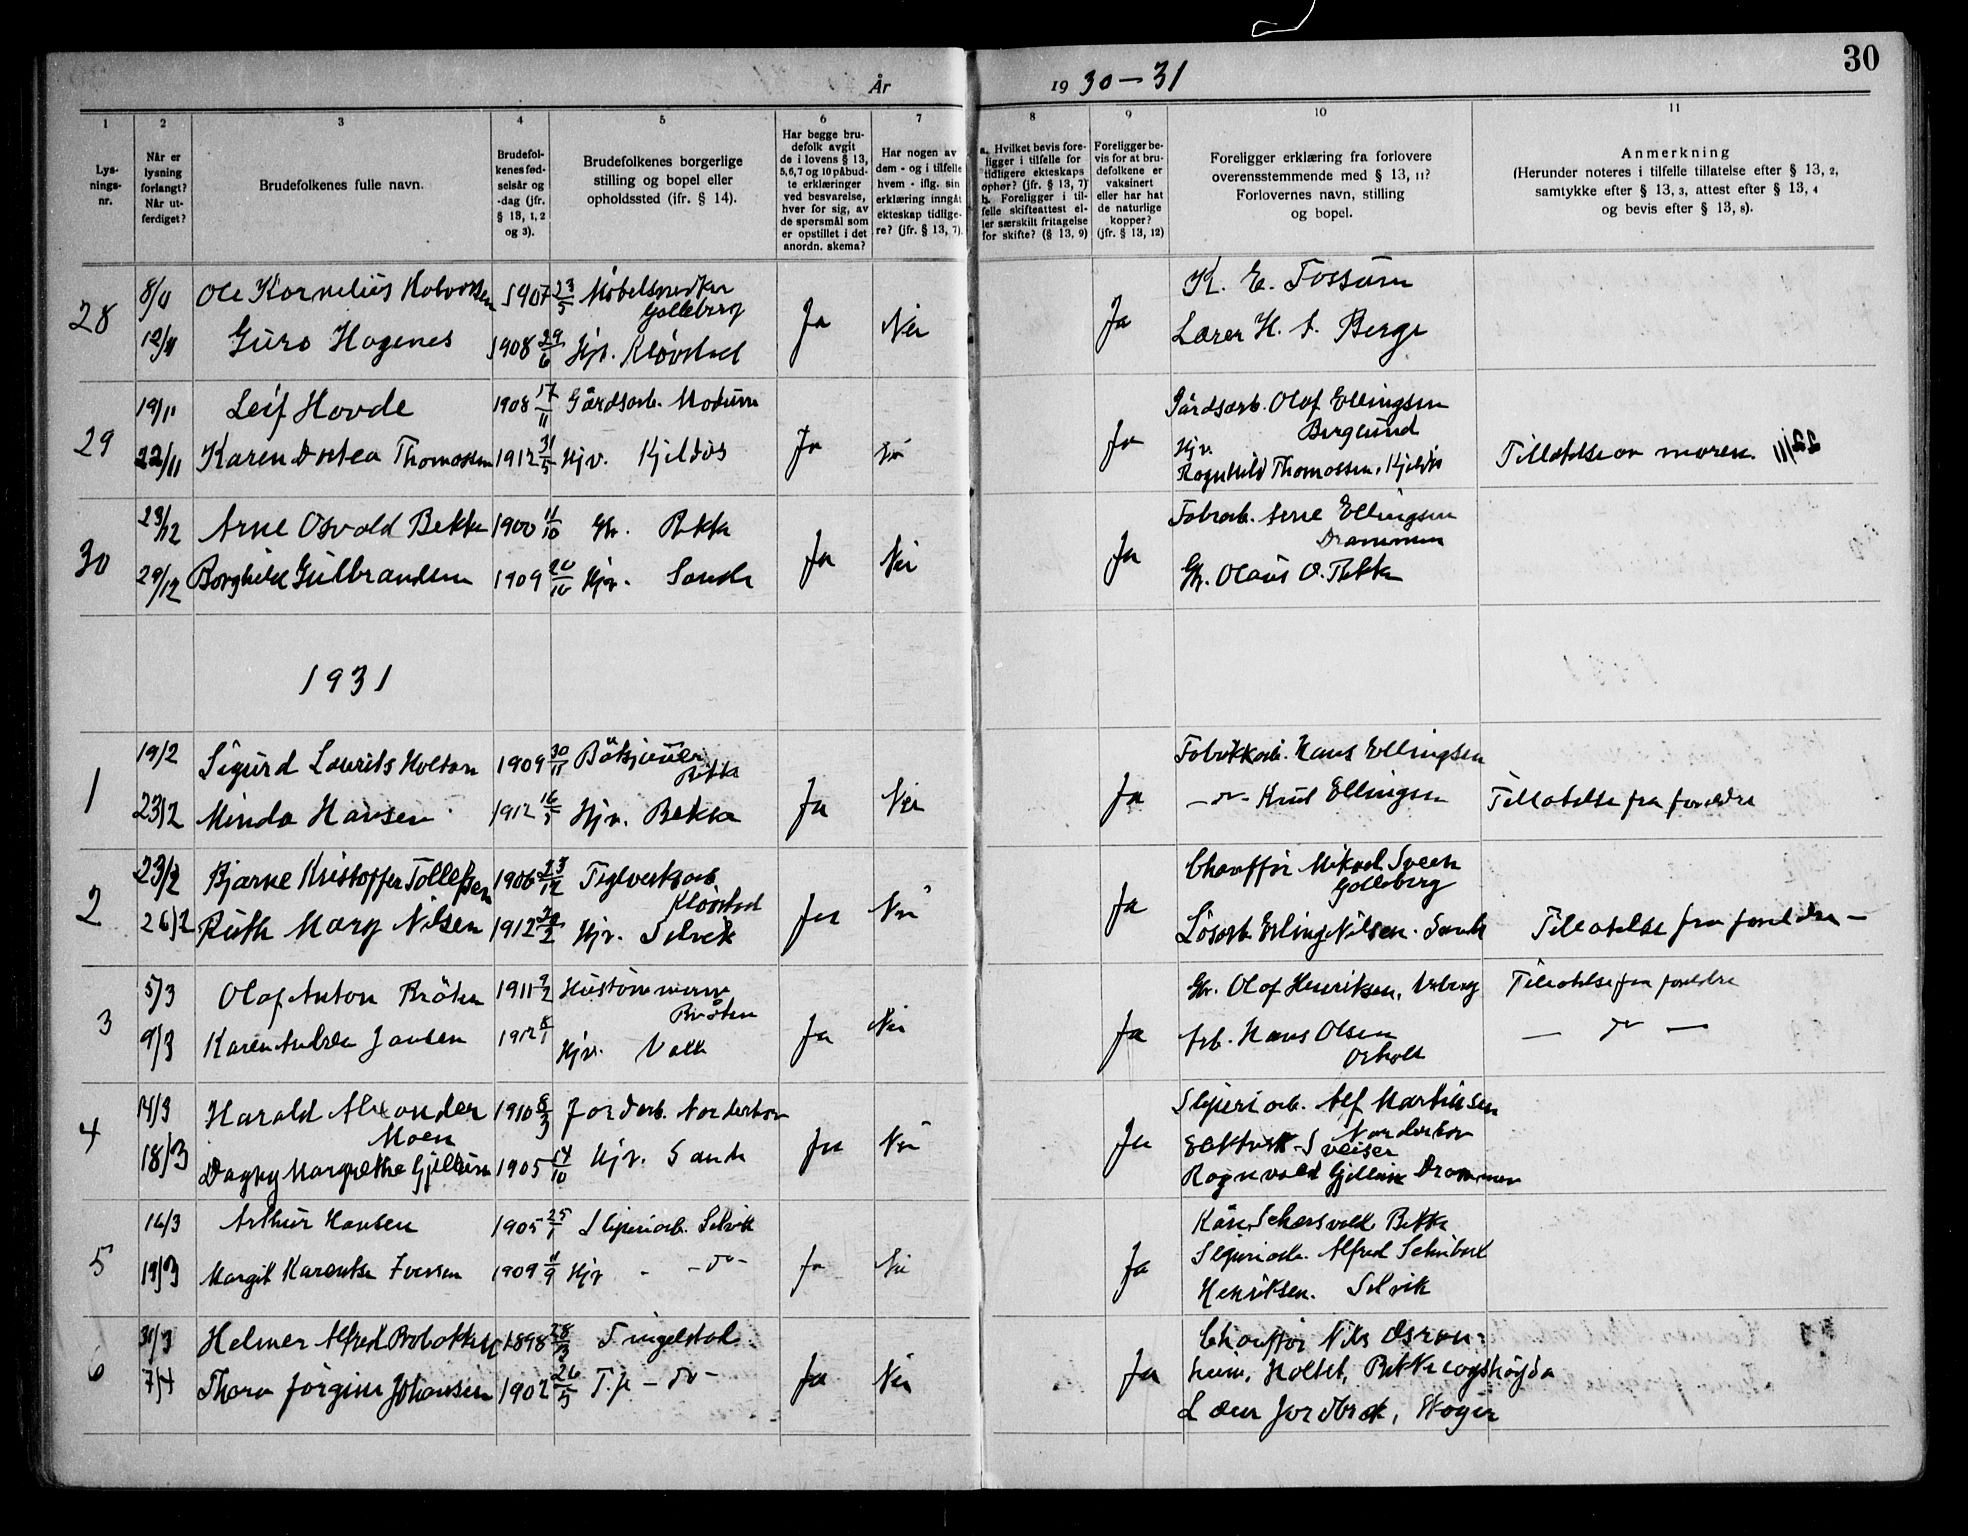 30
År 1930-31
1
Lys-
nings-
nr.
2
Når er
lysning
forlangt?
Når ut-
ferdiget?
3
Brudefolkenes fulle navn.
4
Brudefol-
kenes fød-
selsår og
-dag (jfr.
§ 13, 1, 2
og 3).
5
Brudefolkenes borgerlige
stilling og bopel eller
opholdssted (ifr. § 14).
6
Har begge bru-
defolk avgit
de i lovens § 13,
5,6,7 og 10 påbud-
te erklæringer
ved besvarelse,
hver for sig, av
de spørsmål som
er opstillet i det
anordn. skema?
7
Har nogen av
dem - og i tilfelle
hvem - iflg. sin
erklæring inngåt
ekteskap tidlige-
re? (jfr. § 13, 7).
8
a. Hvilket bevis fore-
ligger i tilfelle for
tidligere ekteskaps
ophør? (jfr. § 13, 7)
b. Foreligger i til-
felle skifteattest el-
ler særskilt fritagelse
for skifte? (§ 13, 9)
9
Foreligger be-
vis for at bru-
defolkene er
vaksinert
eller har hat
de naturlige
kopper?
(jfr. § 13, 12)
10
Foreligger erklæring fra forlovere
overensstemmende med § 13, 11?
Forlovernes navn, stilling
og bopel.
11
Anmerkning
(Herunder noteres i tilfelle tillatelse efter § 13, 2,
samtykke efter § 13, 3, attest efter § 13, 4
og bevis efter § 13, 8).
28 Ole Kornelius Halvorsen 1907 23/5 Møbelsnedker Ja Nei Ja K. E. Fossum
Golleberg
12/11 Guro Hagenes 1908 29/6 Hjv. Kløvstad Lærer H. S. Berge
29 19/11 Leif Hovde 1908 17/11 Gårdsarb. Modum Ja Nei Ja Gårdsarb. Olaf Ellingsen
Berglund
22/11 Karen Dortea Thomassen 1912 31/5 Hjv. Kjeldås Hjv.
Ragnhild Thomassen, Kjeldås Tillatelse av moren 22/11
30 23/12 Arne Osvald Bekka 1900 11/10 Gbr. Bekka Ja Nei Ja Fabrarb. Arne Ellingsen
Drammen
29/12 Borghild Gulbrandsen 1909 20/10 Hjv. Sande Gbr. Olaus O. Bekka
1931
1 19/2 Sigurd Laurits Holtan 1909 30/11 Båtsjauer Ja Nei Ja Fabrikkarb. Hans Ellingsen
Bekka
23/2 Minda Hansen 1912 16/5 Hjv. Bekka -do- Knut Ellingsen Tillatelse fra foreldre
2 23/2 Bjarne Kristoffer Tollefsen 1906 23/12 Teglverksarb. Ja Nei Ja Chauffør Mikael Sveen
Kløvstad Golleberg
26/2 Ruth Mary Nilsen 1912 20/2 Hjv. Selvik Løsarb. Erling Nilsen. Sande Tillatelse fra foreldre -
3 5/3 Olaf Anton Bråten 1911 9/2 Hustømmerm. Ja Nei Ja Gbr. Olaf Henriksen, Tillatelse fra foreldre
Bråten
9/3 Karen Andrea Jansen 1912 8/1 Hjv. Arb. Hans Olsen - do -
4 14/3 Harald Alexander 1910 8/3 Jordarb. Norderhov Ja Nei Ja Sliperiarb. Alf Martinsen
Moen Norderhov
18/3 Dagny Margrethe Gjellum 1905 14/10 Hjv. Sande Elektrisk-Sveiser
Ragnvald Gjellum Drammen
5 16/3 Arthur Hansen 1905 25/1 Sliperiarb. Selvik Ja Nei Ja Kåre Bekka
19/3 Margit Karentse Iversen 1909 11/9 Hjv - -do- Sliperiarb. Alfred
Henriksen. Selvik
6 31/3 Helmer Alfred 1898 28/3 Singelstad Ja Nei Ja Chauffør Nils
7/4 Thora Jørgine Johansen 1902 26/5 T.p -do- heim, Holtet, Bekkelagshøgda
Jordbræk, Skoger